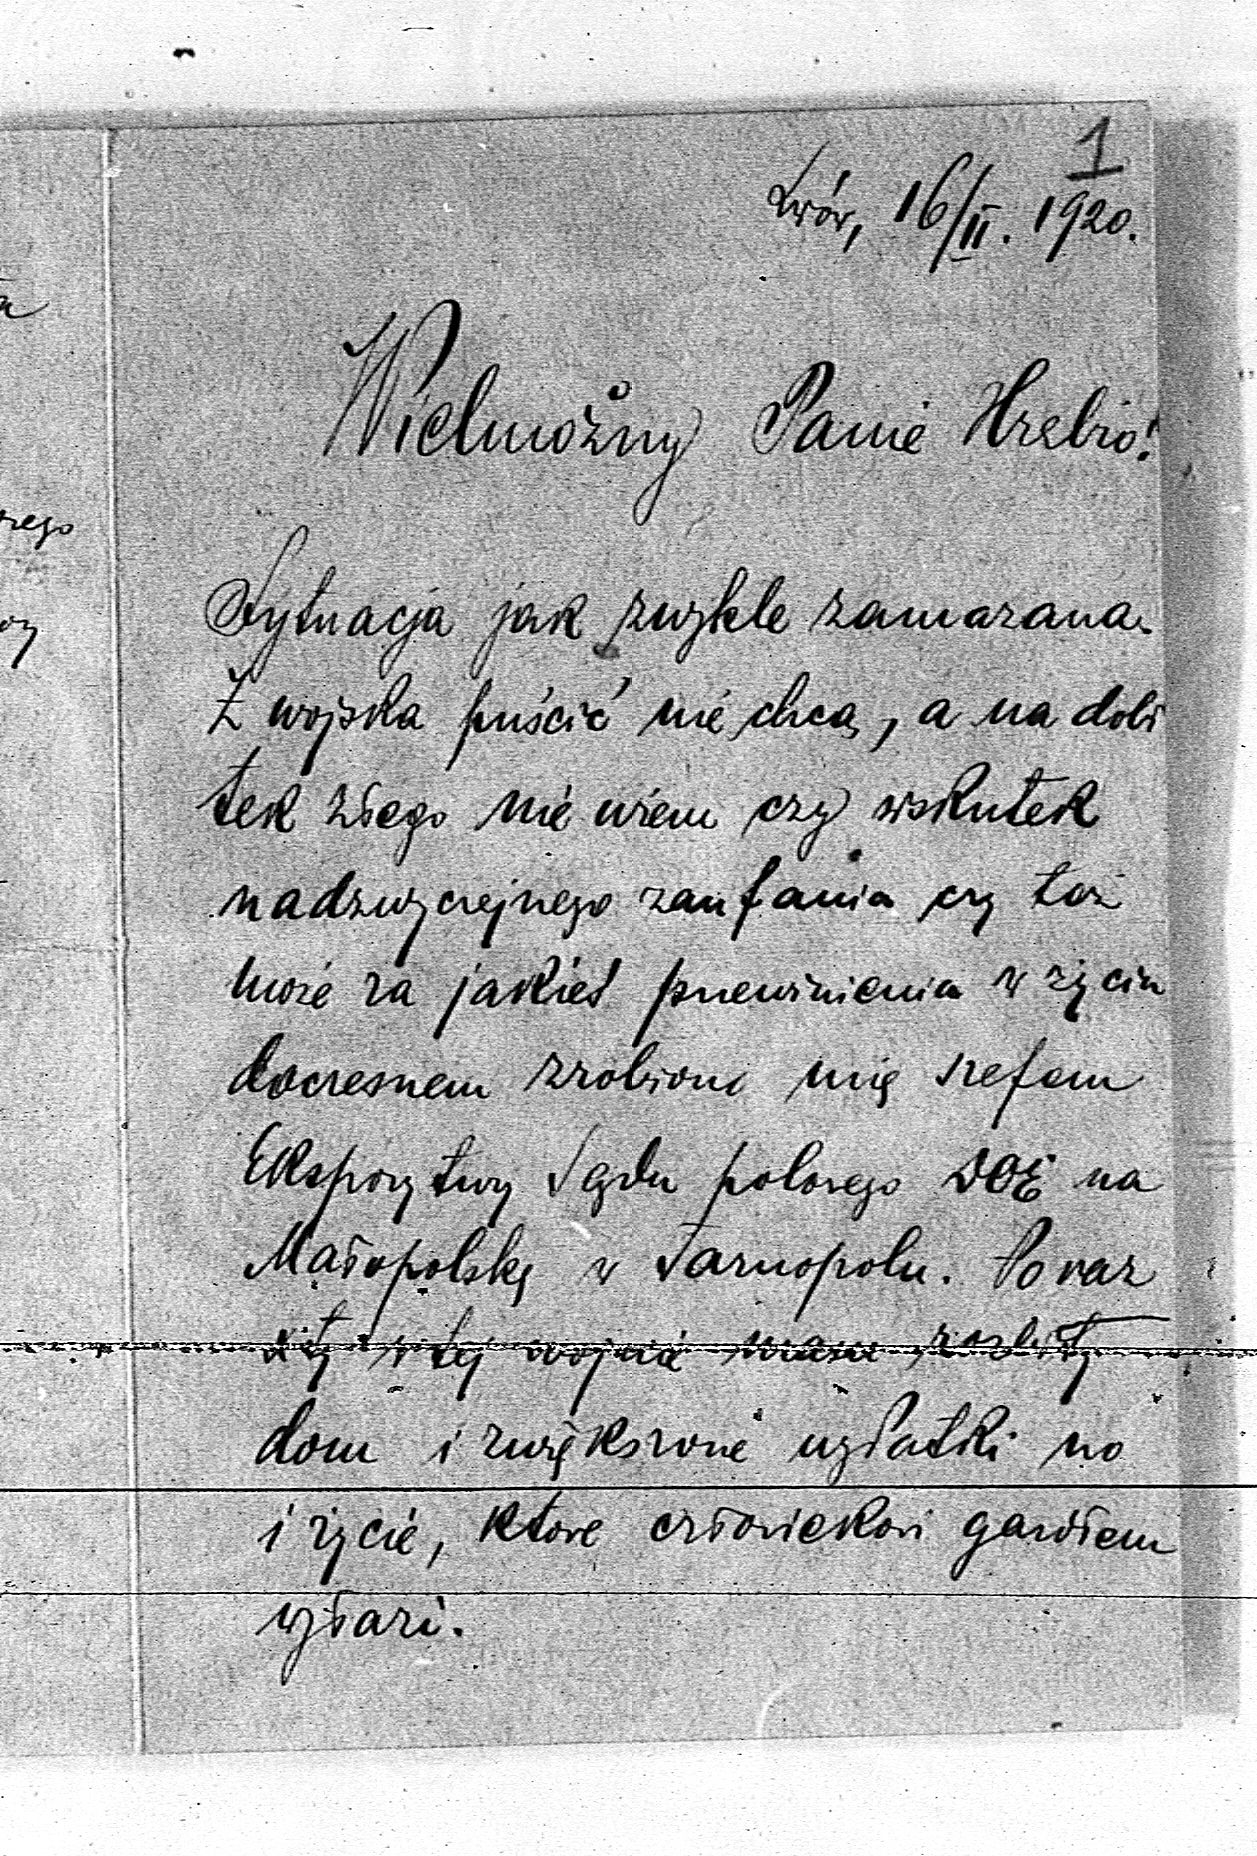 1
Lwów, 16/II. 1920.
Wielmożny Panie Hrabio!
Sytuacja jak zwykle zamazana.
Z wojska puścić nie chcą, a na dobi
tek złego nie wiem czy wskutek
nadzwyczejnego zaufania czy też
może za jakieś przewinienia w życiu
doczesnem zrobiono mię szefem
Ekspozytury Sądu polowego DOE na
Małopolskę w Tarnopolu. Po raz
w tej wojnie mam rozbity
dom i zwiększone wydatki no
i życie, które człowiekowi gardłem
wyłazi.